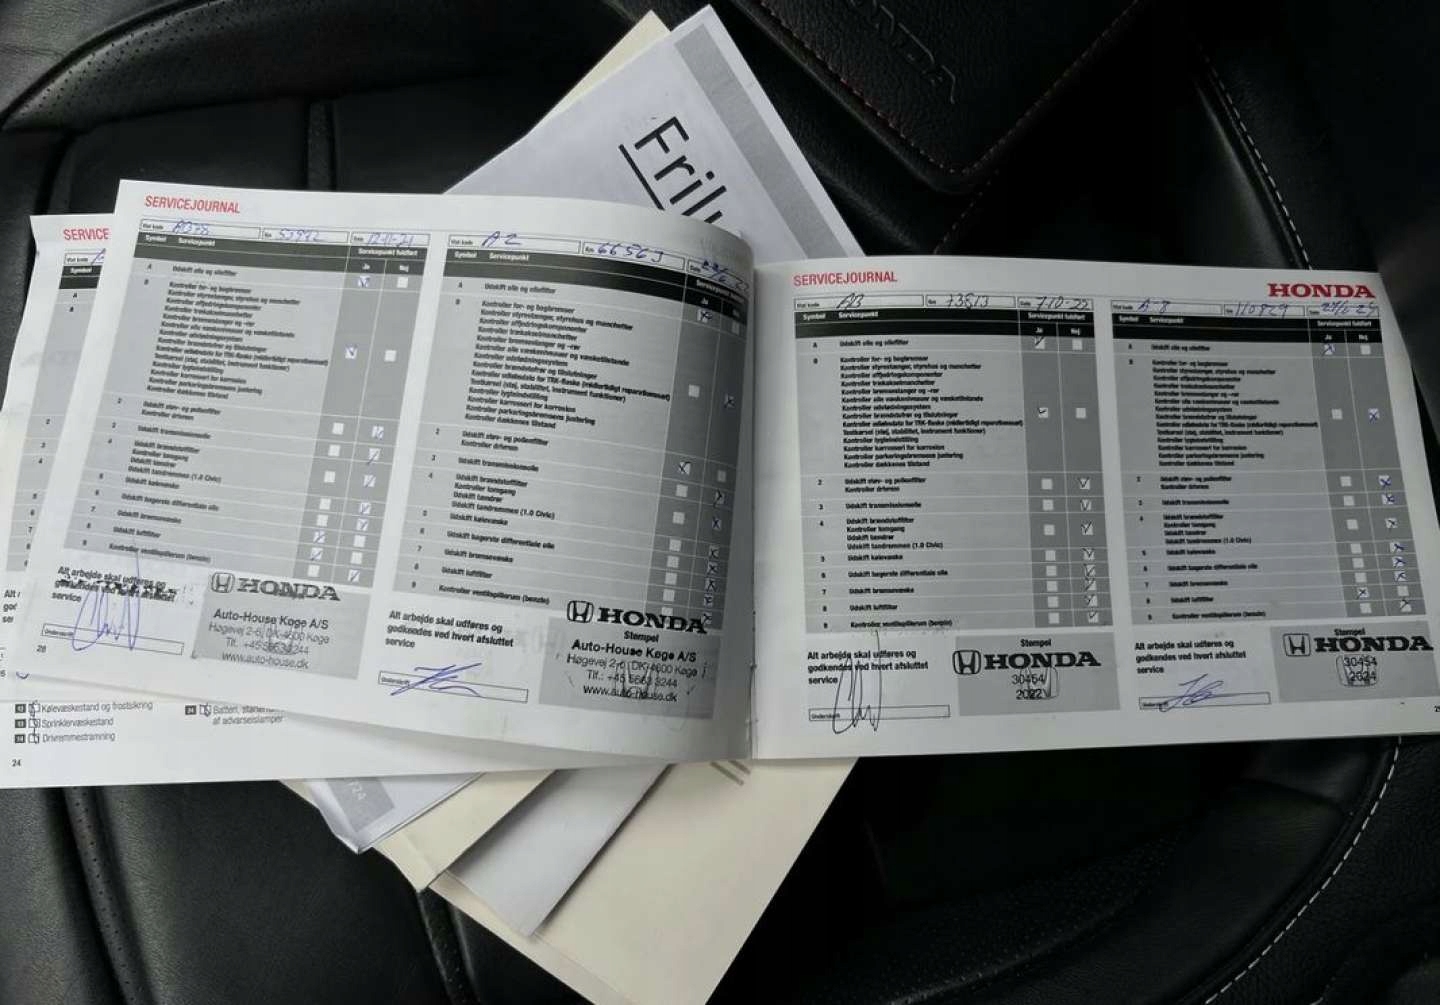 HONDA
Frilu
SERVICE
Symbol
A
B
2
3
4
5
6
7
8
9
SERVICEJOURNAL
Vist kode
Km
Dato 12-11-21
Symbol Servicepunkt Servicepunkt fuldført
Ja Nej
A Udskift olie og oliefilter
B Kontroller for- og bagbremser
Kontroller styrestænger, styrehus og manchetter
Kontroller affjedringskomponenter
Kontroller trækakselmanchetter
Kontroller bremseslanger og -rør
Kontroller alle væskeniveauer og væsketilstande
Kontroller udstødningssystem
Kontroller brændstofrør og tilslutninger
Kontroller udløbsdato for TRK-flaske (midlertidigt reparationssæt)
Testkørsel (støj, stabilitet, instrument funktioner)
Kontroller lygteindstilling
Kontroller karrosseri for korrosion
Kontroller parkeringsbremsens justering
Kontroller dækkenes tilstand
2 Udskift støv- og pollenfilter
Kontroller drivrem
3 Udskift transmissionsolie
4 Udskift brændstoffilter
Kontroller tomgang
Udskift tændrør
Udskift tandremmen (1.0 Civic)
5 Udskift kølevæske
6 Udskift bagerste differentiale olie
7 Udskift bremsevæske
8 Udskift luftfilter
9 Kontroller ventilspillerum (benzin)
Alt arbejde skal udføres og
godkendes ved hvert afsluttet
service
Underskrift
HONDA
Auto-House Køge A/S
Høgevej 2-6, DK-4600 Køge
Tlf. +45 5663 8244
www.auto-house.dk
28
Vist kode A2
Km 66563
Dato
Symbol Servicepunkt Servicepunkt fuldført
Ja Nej
A Udskift olie og oliefilter
B Kontroller for- og bagbremser
Kontroller styrestænger, styrehus og manchetter
Kontroller affjedringskomponenter
Kontroller trækakselmanchetter
Kontroller bremseslanger og -rør
Kontroller alle væskeniveauer og væsketilstande
Kontroller udstødningssystem
Kontroller brændstofrør og tilslutninger
Kontroller udløbsdato for TRK-flaske (midlertidigt reparationssæt)
Testkørsel (støj, stabilitet, instrument funktioner)
Kontroller lygteindstilling
Kontroller karrosseri for korrosion
Kontroller parkeringsbremsens justering
Kontroller dækkenes tilstand
2 Udskift støv- og pollenfilter
Kontroller drivrem
3 Udskift transmissionsolie
4 Udskift brændstoffilter
Kontroller tomgang
Udskift tændrør
Udskift tandremmen (1.0 Civic)
5 Udskift kølevæske
6 Udskift bagerste differentiale olie
7 Udskift bremsevæske
8 Udskift luftfilter
9 Kontroller ventilspillerum (benzin)
Alt arbejde skal udføres og
godkendes ved hvert afsluttet
service
Underskrift
HONDA
Stempel
Auto-House Køge A/S
Høgevej 2-6, DK-4600 Køge
Tlf.: +45 5663 8244
www.auto-house.dk
SERVICEJOURNAL
Vist kode AB
Km 73813
Dato 7-10-22
Symbol Servicepunkt Servicepunkt fuldført
Ja Nej
A Udskift olie og oliefilter
B Kontroller for- og bagbremser
Kontroller styrestænger, styrehus og manchetter
Kontroller affjedringskomponenter
Kontroller trækakselmanchetter
Kontroller bremseslanger og -rør
Kontroller alle væskeniveauer og væsketilstande
Kontroller udstødningssystem
Kontroller brændstofrør og tilslutninger
Kontroller udløbsdato for TRK-flaske (midlertidigt reparationssæt)
Testkørsel (støj, stabilitet, instrument funktioner)
Kontroller lygteindstilling
Kontroller karrosseri for korrosion
Kontroller parkeringsbremsens justering
Kontroller dækkenes tilstand
2 Udskift støv- og pollenfilter
Kontroller drivrem
3 Udskift transmissionsolie
4 Udskift brændstoffilter
Kontroller tomgang
Udskift tændrør
Udskift tandremmen (1.0 Civic)
5 Udskift kølevæske
6 Udskift bagerste differentiale olie
7 Udskift bremsevæske
8 Udskift luftfilter
9 Kontroller ventilspillerum (benzin)
Alt arbejde skal udføres og
godkendes ved hvert afsluttet
service
Underskrift
Stempel
HONDA
30454
2022
HONDA
Vist kode A-8
Km 110829
Dato
Symbol Servicepunkt Servicepunkt fuldført
Ja Nej
A Udskift olie og oliefilter
B Kontroller for- og bagbremser
Kontroller styrestænger, styrehus og manchetter
Kontroller affjedringskomponenter
Kontroller trækakselmanchetter
Kontroller bremseslanger og -rør
Kontroller alle væskeniveauer og væsketilstande
Kontroller udstødningssystem
Kontroller brændstofrør og tilslutninger
Kontroller udløbsdato for TRK-flaske (midlertidigt reparationssæt)
Testkørsel (støj, stabilitet, instrument funktioner)
Kontroller lygteindstilling
Kontroller karrosseri for korrosion
Kontroller parkeringsbremsens justering
Kontroller dækkenes tilstand
2 Udskift støv- og pollenfilter
Kontroller drivrem
3 Udskift transmissionsolie
4 Udskift brændstoffilter
Kontroller tomgang
Udskift tændrør
Udskift tandremmen (1.0 Civic)
5 Udskift kølevæske
6 Udskift bagerste differentiale olie
7 Udskift bremsevæske
8 Udskift luftfilter
9 Kontroller ventilspillerum (benzin)
Alt arbejde skal udføres og
godkendes ved hvert afsluttet
service
Underskrift
Stempel
HONDA
30454
2024
Kølevæskestand og frostsikring
Sprinklervæskestand
Drivremmestramning
Batteri,
af advarselslamper
24